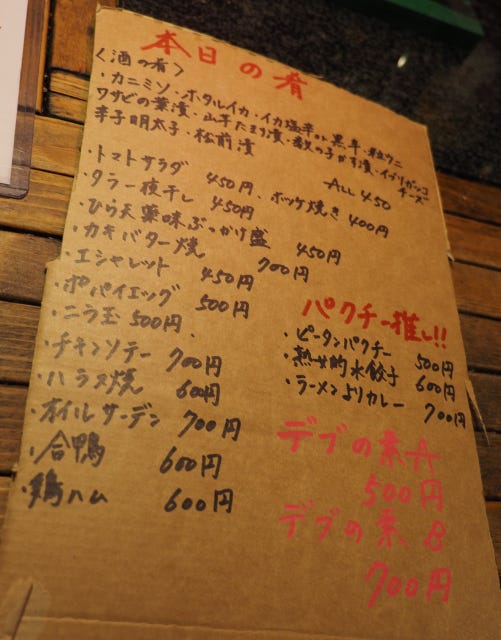 本日の肴
〈酒の肴〉
・カニミソ・ホタルイカ・イカ塩辛or黒辛・粒ウニ
ワサビの葉漬・山芋たまり漬・数の子かす漬・イブリガッコチーズ
辛子明太子・松前漬
ALL 450
・トマトサラダ 450円
・ホッケ焼き 400円
・タラ一夜干し 450円
・ひら天薬味ぶっかけ盛 450円
・カキバター焼 700円
・エシャレット 450円
・ポパイエッグ 500円
・ニラ玉 500円
・チキンソテー 700円
・ハラス焼 600円
・オイルサーデン 700円
・合鴨 600円
・鶏ハム 600円
パクチー推し!!
・ピータンパクチー 500円
・熟女的水餃子 600円
・ラーメンよりカレー 700円
デブの素A
500円
デブの素B
700円